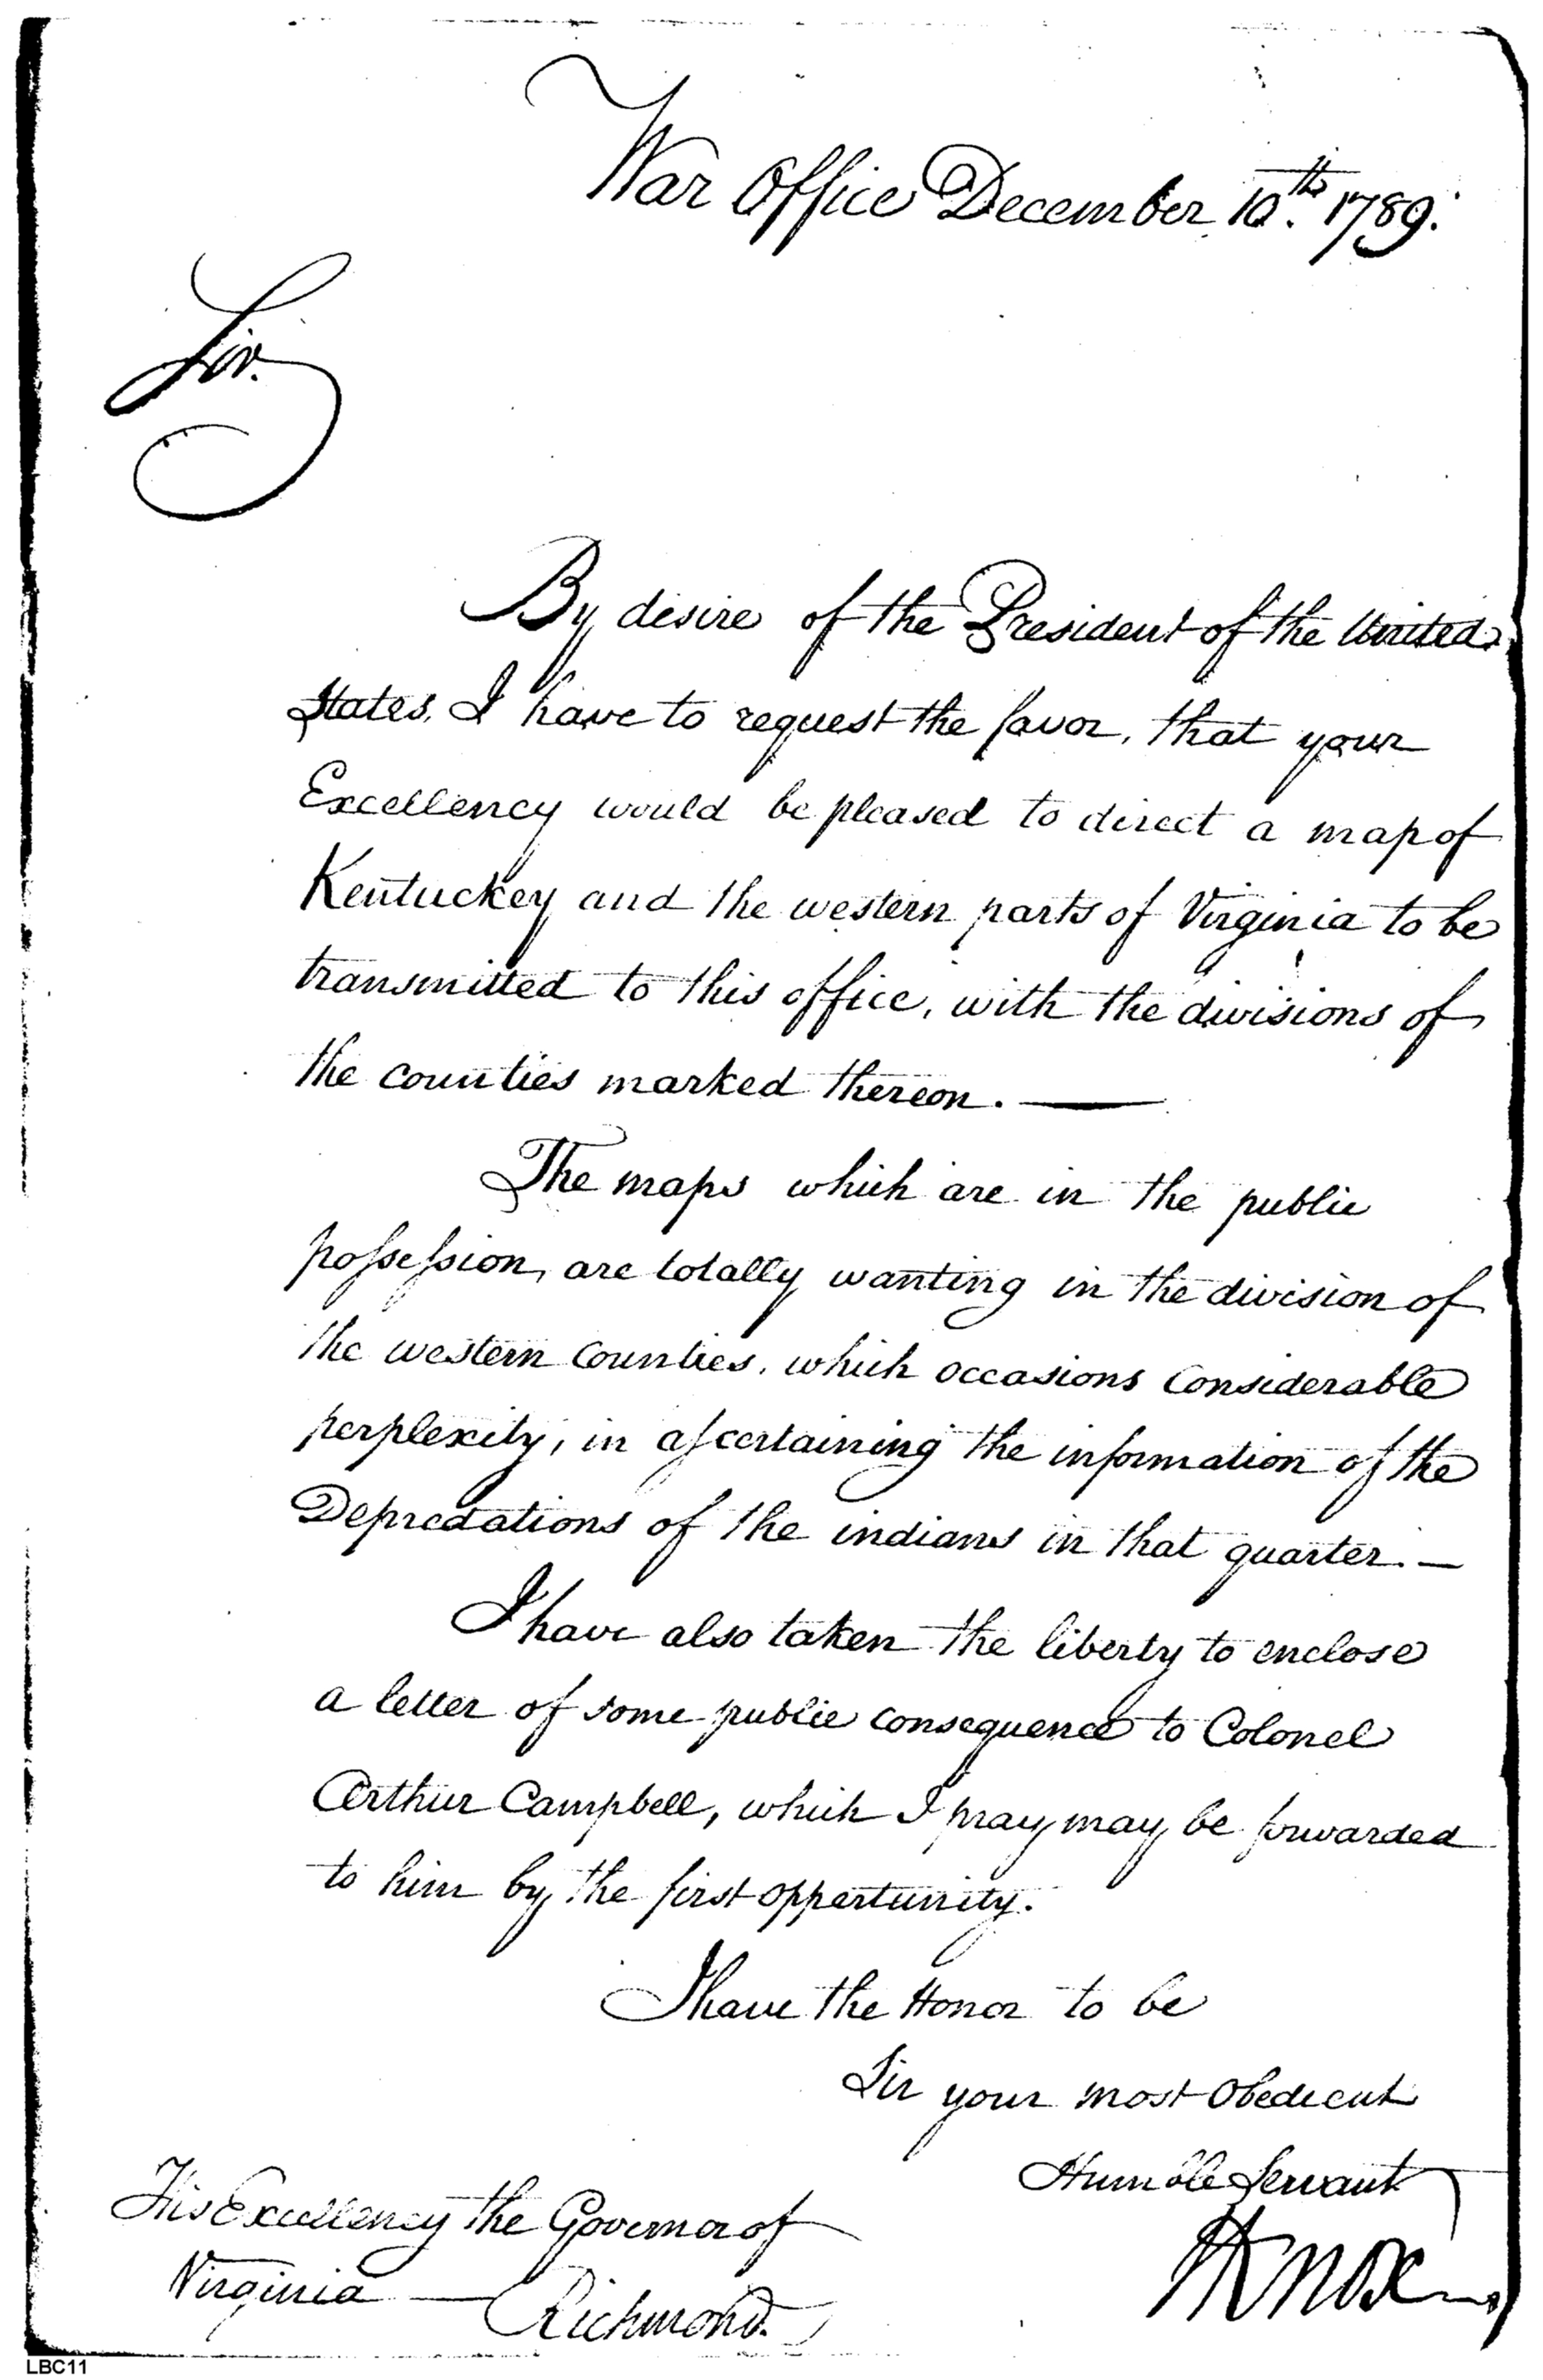 War Office December 10th. 1789.
Sir.
By desire of the President of the United
States, I have to request the favor, that your
Excellency would be pleased to direct a map of
Kentuckey and the western parts of Virginia to be
transmitted to this office, with the divisions of
the counties marked thereon. —
The maps which are in the public
possession, are totally wanting in the division of
the western counties, which occasions considerable
perplexity, in ascertaining the information of the
Depredations of the indians in that quarter. —
I have also taken the liberty to enclose
a letter of some public consequence to Colonel
Arthur Campbell, which I pray may be forwarded
to him by the first oppertunity.
I have the Honor to be
Sir your most Obedient
Humble Servant
HKnox
His Excellency the Governor of
Virginia — Richmond.
LBC11